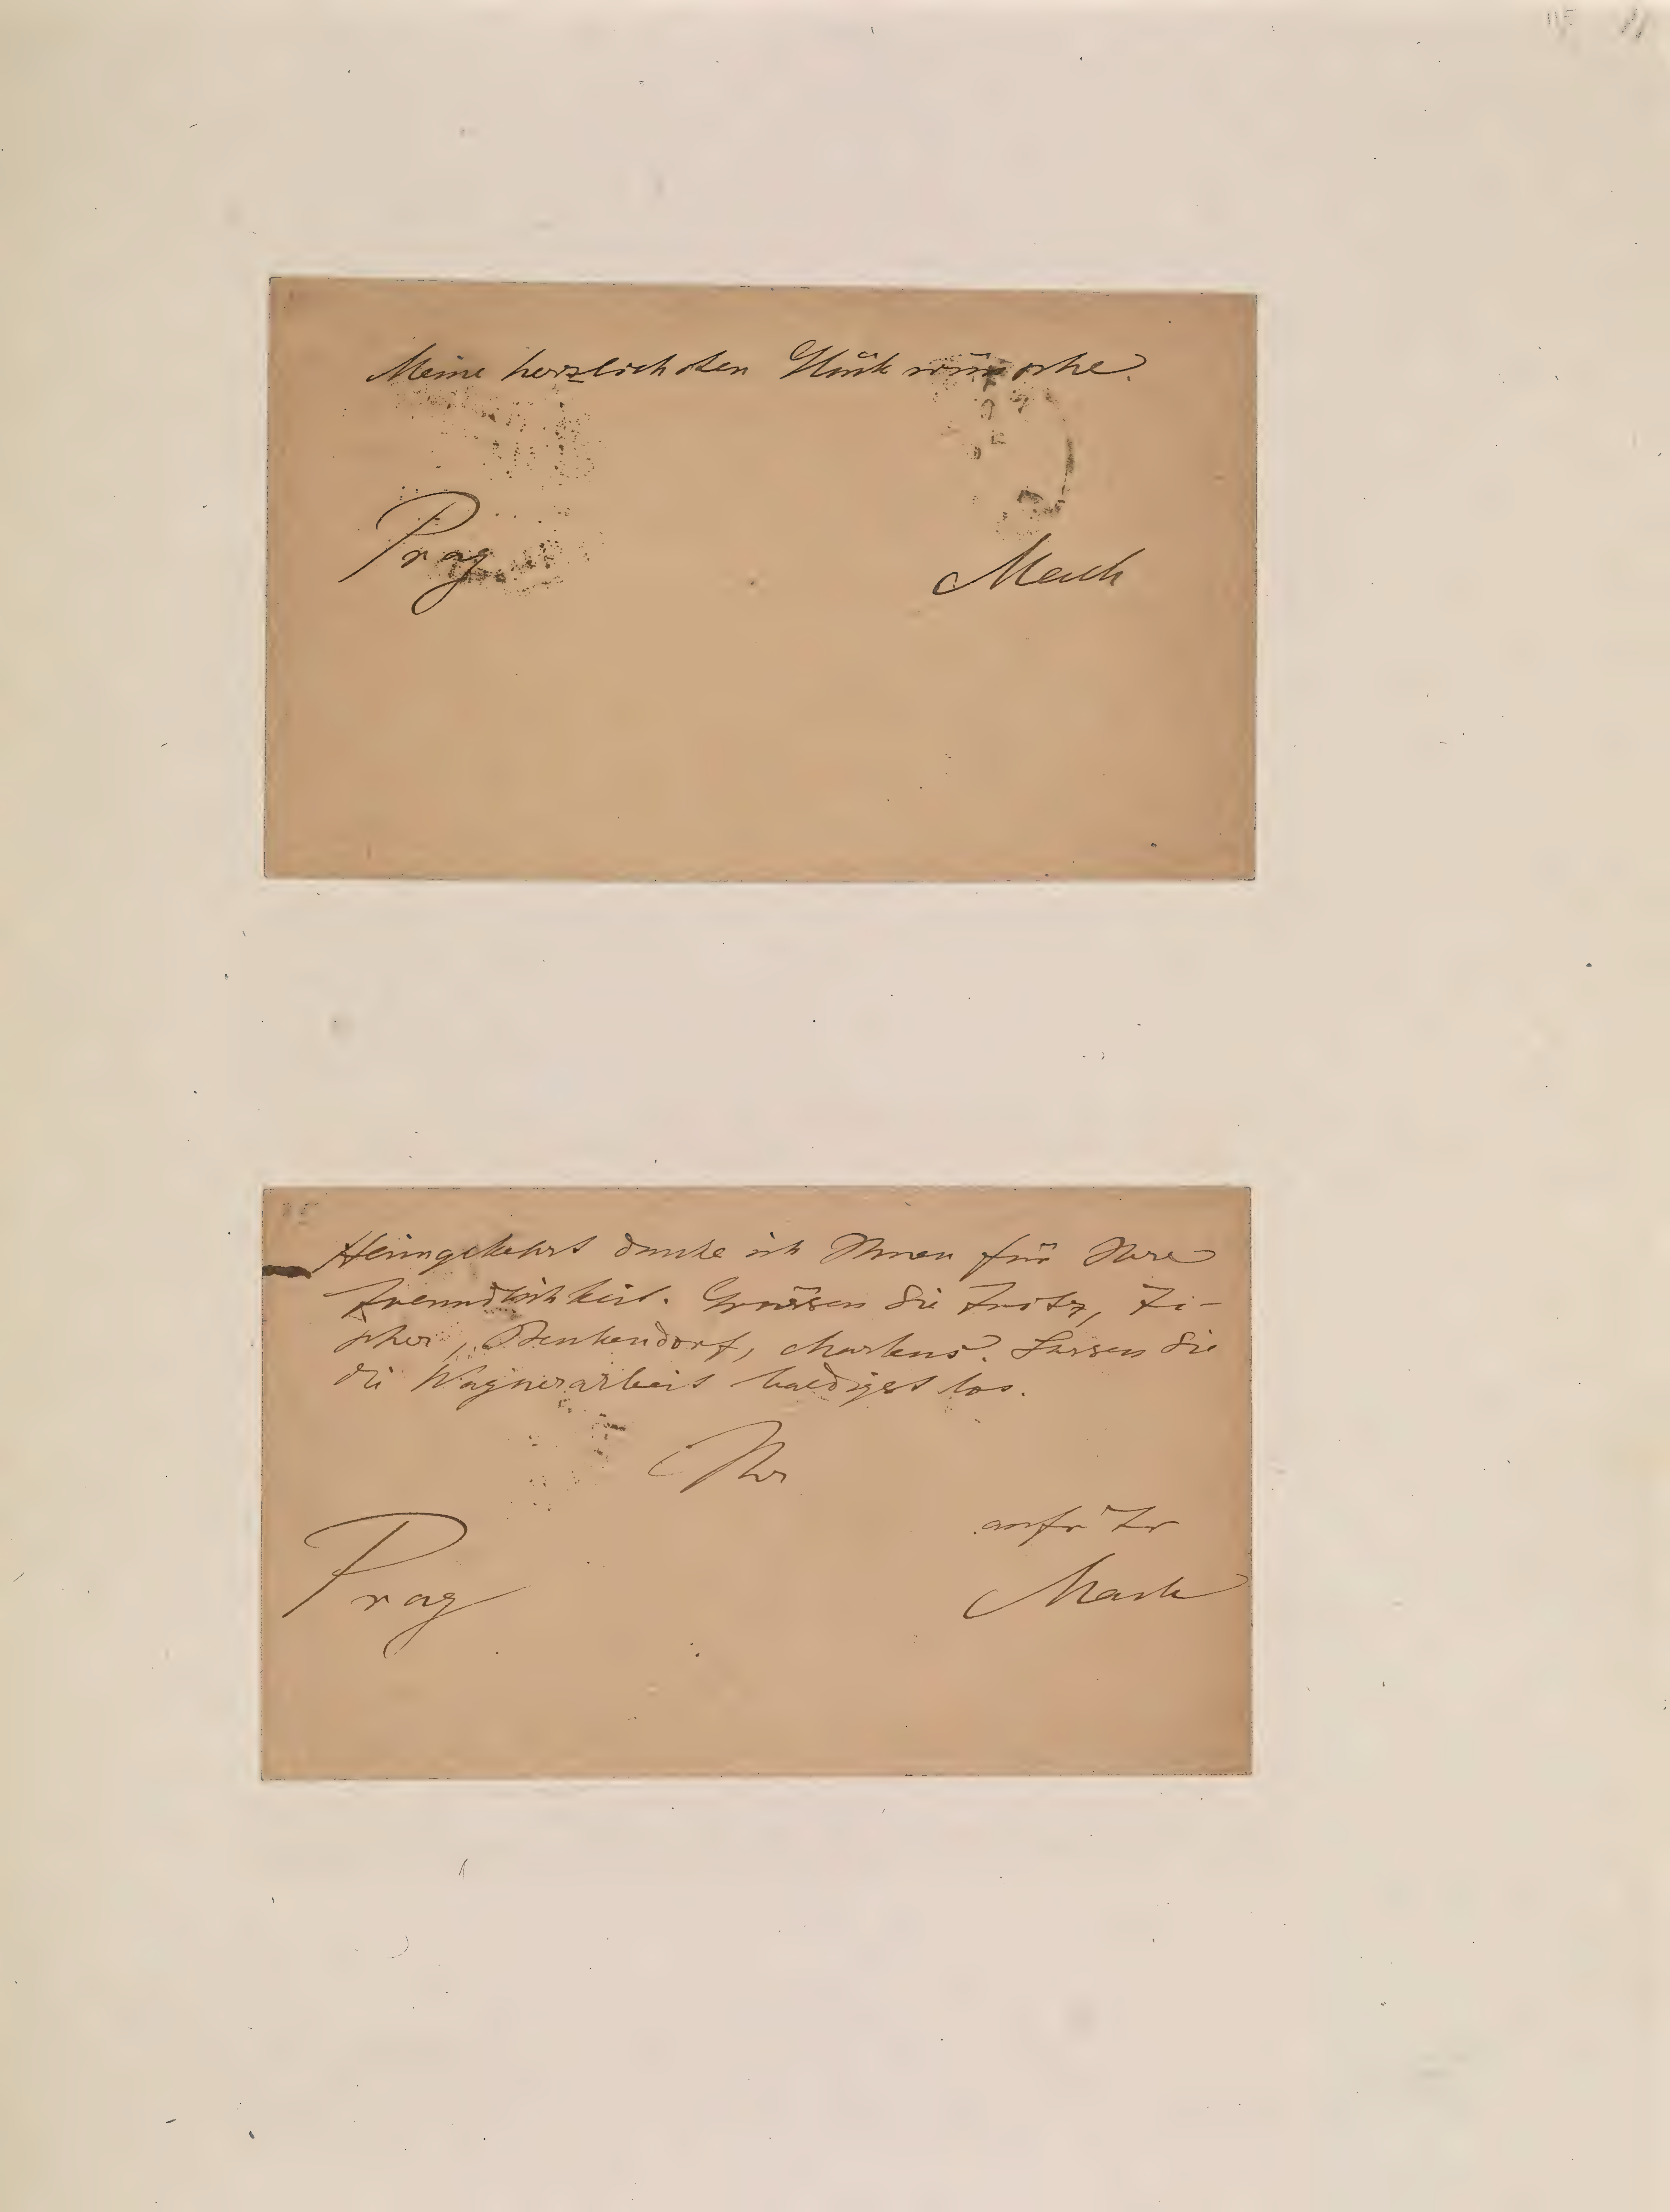 Meine herzlichsten Glückwünsche.
Prag
Mach
Heimgekehrt danke ich Ihnen für Ihre
Freundlichkeit. Grüssen Sie Fritz, Fi-
scher, Benkendorf, Martens. Lassen Sie
die Wagnerarbeit baldigst los.
Ihr
Prag
Mach